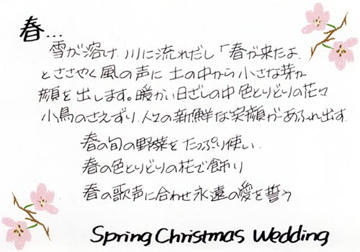 春...
雪が溶け川に流れだし「春が来たよ
とささやく風の声に 土の中から小さな芽が
顔を出します。暖かい日ざしの中色とりどりの花々
小鳥のさえずり、人々の新鮮な笑顔があふれ出す
春の旬の野菜をたっぷり使い
春の色とりどりの花で飾り
春の歌声に合わせ永遠の愛を誓う
Spring Christmas Wedding